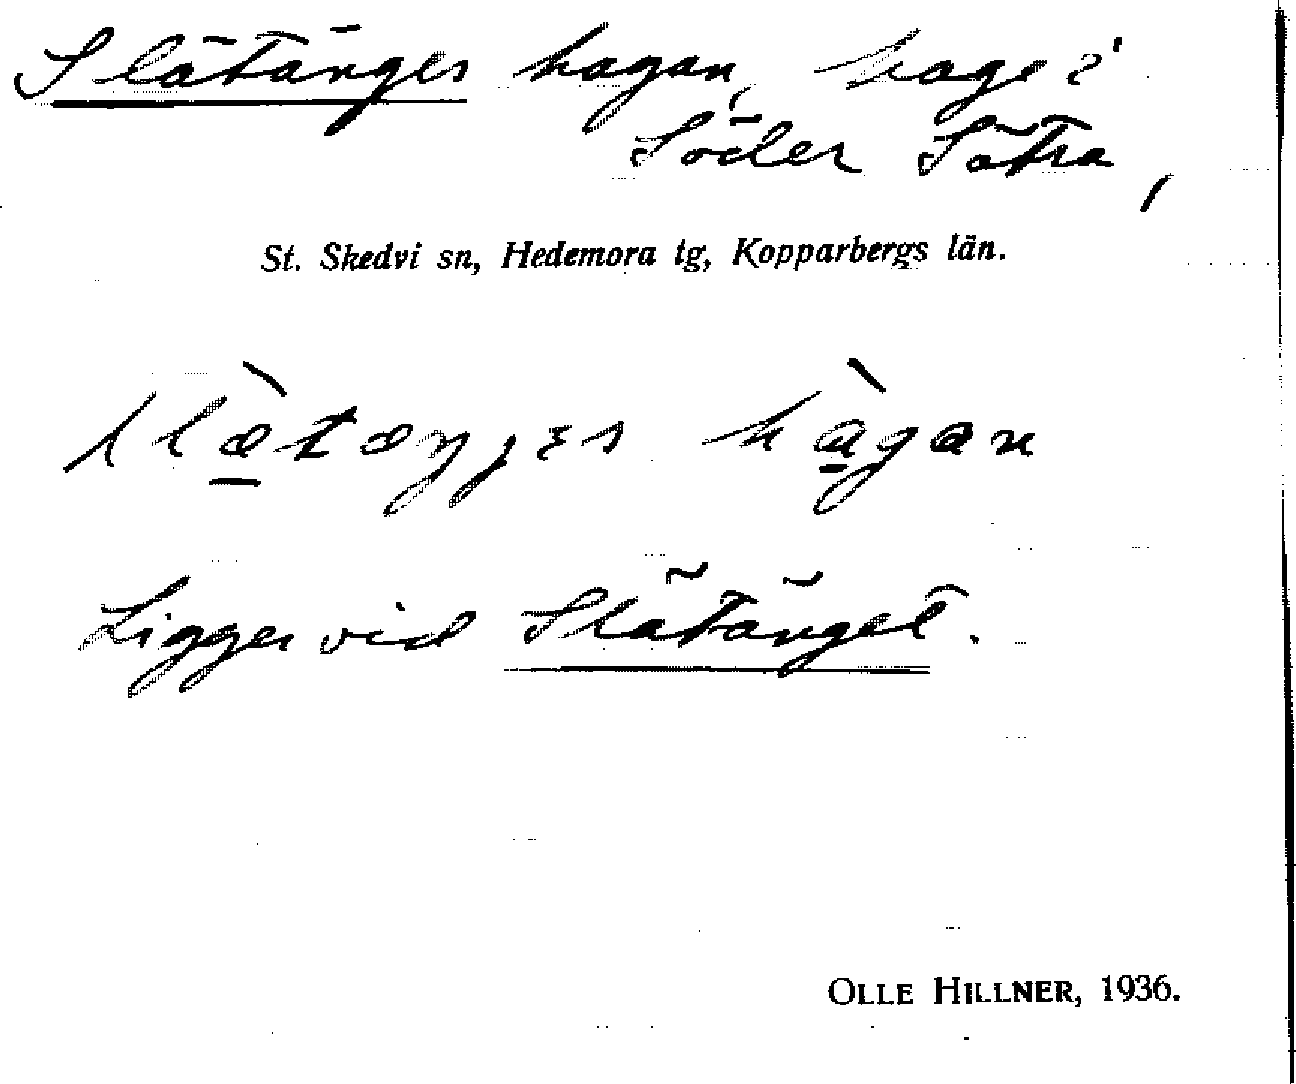 Slätänges hagan, hage i
Söder Sätra,
St. Skedvi sn, Hedemora tg, Kopparbergs län.
slæ̀tæŋjɛs hàgan
Ligger vid Slätänget.
OLLE HILLNER, 1936.